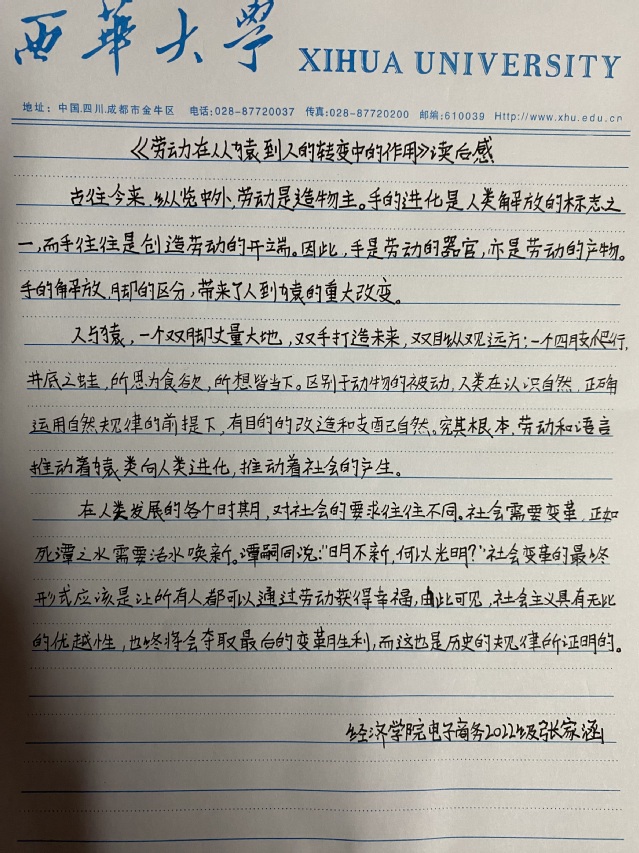 西華大學 XIHUA UNIVERSITY
地址：中国.四川.成都市金牛区 电话:028-87720037 传真:028-87720200 邮编:610039 Http://www.xhu.edu.cn
《劳动在从猿到人的转变中的作用》读后感
古往今来,纵览中外,劳动是造物主。手的进化是人类解放的标志之
一,而手往往是创造劳动的开端。因此,手是劳动的器官,亦是劳动的产物。
手的解放,脚的区分,带来了人到猿的重大改变。
人与猿,一个双脚丈量大地,双手打造未来,双目纵观远方;一个四肢爬行,
井底之蛙,所思为食欲,所想皆当下。区别于动物的被动,人类在认识自然,正确
运用自然规律的前提下,有目的的改造和支配自然。究其根本,劳动和语言
推动着猿类向人类进化,推动着社会的产生。
在人类发展的各个时期,对社会的要求往往不同。社会需要变革,正如
死潭之水需要活水唤新。谭嗣同说:"明不新,何以光明?"社会变革的最终
形式应该是让所有人都可以通过劳动获得幸福,由此可见,社会主义具有无比
的优越性,也终将会夺取最后的变革胜利,而这也是历史的规律所证明的。
经济学院电子商务2022级张家涵